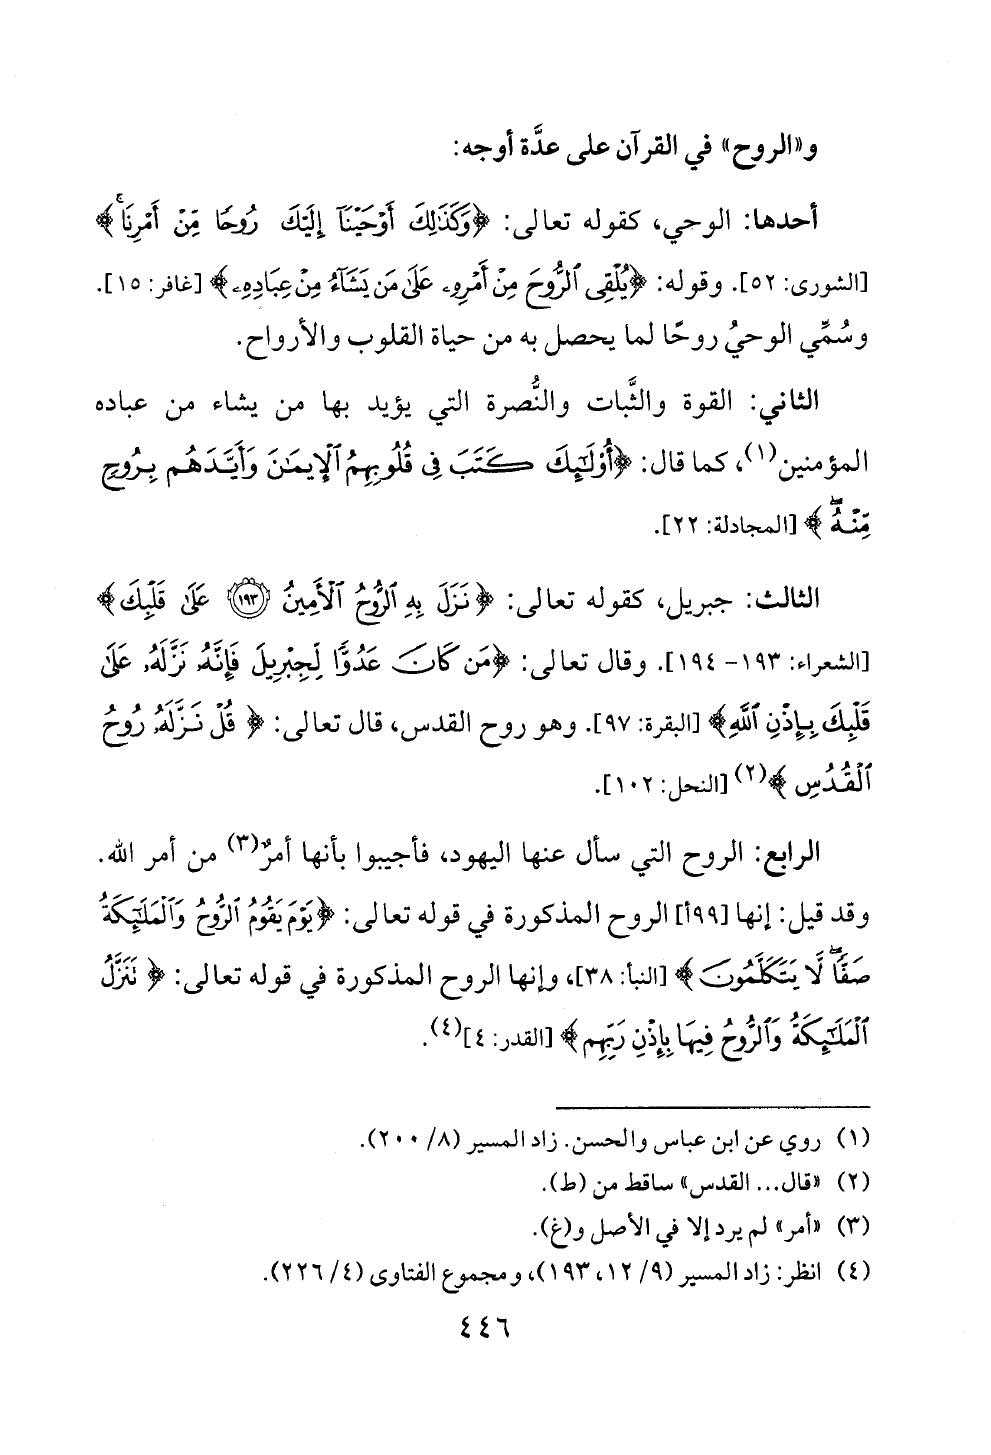 و«الروح» في القرآن على عدَّة أوجه:
أحدها: الوحي، كقوله تعالى: ﴿وَكَذَٰلِكَ أَوْحَيْنَآ إِلَيْكَ رُوحًا مِّنْ أَمْرِنَا ۚ﴾
[الشورى: ٥٢]. وقوله: ﴿يُلْقِى ٱلرُّوحَ مِنْ أَمْرِهِۦ عَلَىٰ مَن يَشَآءُ مِنْ عِبَادِهِۦ﴾ [غافر: ١٥].
وسُمِّي الوحيُ روحًا لما يحصل به من حياة القلوب والأرواح.
الثاني: القوة والثَّبات والنُّصرة التي يؤيد بها من يشاء من عباده
المؤمنين(١)، كما قال: ﴿أُوْلَٰٓئِكَ كَتَبَ فِى قُلُوبِهِمُ ٱلْإِيمَٰنَ وَأَيَّدَهُم بِرُوحٍ
مِّنْهُ ۖ﴾ [المجادلة: ٢٢].
الثالث: جبريل، كقوله تعالى: ﴿نَزَلَ بِهِ ٱلرُّوحُ ٱلْأَمِينُ ١٩٣ عَلَىٰ قَلْبِكَ﴾
[الشعراء: ١٩٣- ١٩٤]. وقال تعالى: ﴿مَن كَانَ عَدُوًّا لِّجِبْرِيلَ فَإِنَّهُۥ نَزَّلَهُۥ عَلَىٰ
قَلْبِكَ بِإِذْنِ ٱللَّهِ﴾ [البقرة: ٩٧]. وهو روح القدس، قال تعالى: ﴿قُلْ نَزَّلَهُۥ رُوحُ
ٱلْقُدُسِ﴾(٢) [النحل: ١٠٢].
الرابع: الروح التي سأل عنها اليهود، فأجيبوا بأنها أمرٌ(٣) من أمر الله.
وقد قيل: إنها [٩٩أ] الروح المذكورة في قوله تعالى: ﴿يَوْمَ يَقُومُ ٱلرُّوحُ وَٱلْمَلَٰٓئِكَةُ
صَفًّا ۖ لَّا يَتَكَلَّمُونَ﴾ [النبأ: ٣٨]، وإنها الروح المذكورة في قوله تعالى: ﴿تَنَزَّلُ
ٱلْمَلَٰٓئِكَةُ وَٱلرُّوحُ فِيهَا بِإِذْنِ رَبِّهِم﴾ [القدر: ٤](٤).
(١) روي عن ابن عباس والحسن. زاد المسير (٨/ ٢٠٠).
(٢) «قال... القدس» ساقط من (ط).
(٣) «أمر» لم يرد إلا في الأصل و(غ).
(٤) انظر: زاد المسير (٩/ ١٢، ١٩٣)، ومجموع الفتاوى (٤/ ٢٢٦).
٤٤٦